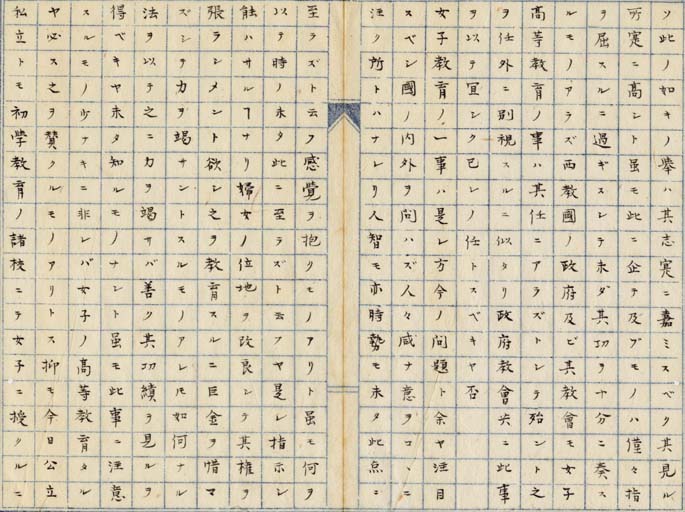 ソ此ノ如キノ擧ハ其志寔ニ嘉ミスベク其見ル
所寔ニ高シト虽モ此ニ企テ及ブモノハ僅々指
ヲ屈スルニ過ギスシテ未ダ其功ヲ十分ニ奏ス
ルモノアラズ西教國ノ政府及ビ其教會モ女子
高等教育ノ事ハ其任ニアラズトシテ殆ント之
ヲ任外ニ別視スルニ似タリ政府教會共ニ此事
ヲ以テ宜シク己レノ任トスベキヤ否
女子教育ノ一事ハ是レ方今ノ問題ト余ヤ注目
スベシ國ノ内外ヲ問ハズ人々咸ナ意ヲコヽニ
注ク所トハナレリ人智モ亦時勢モ未タ此点ニ
至ラズト云フ感覺ヲ抱クモノアリト虽モ何ヲ
以テ時ノ未タ此ニ至ラズト云フヤ是レ指示シ
能ハサルヿナリ婦女ノ位地ヲ改良シテ其権ヲ
張ラシメント欲シ之ヲ教育スルニ巨金ヲ惜マ
ズシテ力ヲ竭サントスルモノアレ𪜈如何ナル
法ヲ以テ之ニ力ヲ竭サバ善ク其功績ヲ見ルヲ
得ベキヤ未タ知ルモノナシト虽モ此事ニ注意
スルモノ少ナキニ非レバ女子ノ高等教育タル
ヤ必ス之ヲ賛クルモノアリトス抑モ今日公立
私立トモ初學教育ノ諸校ニテ女子ニ授クルニ